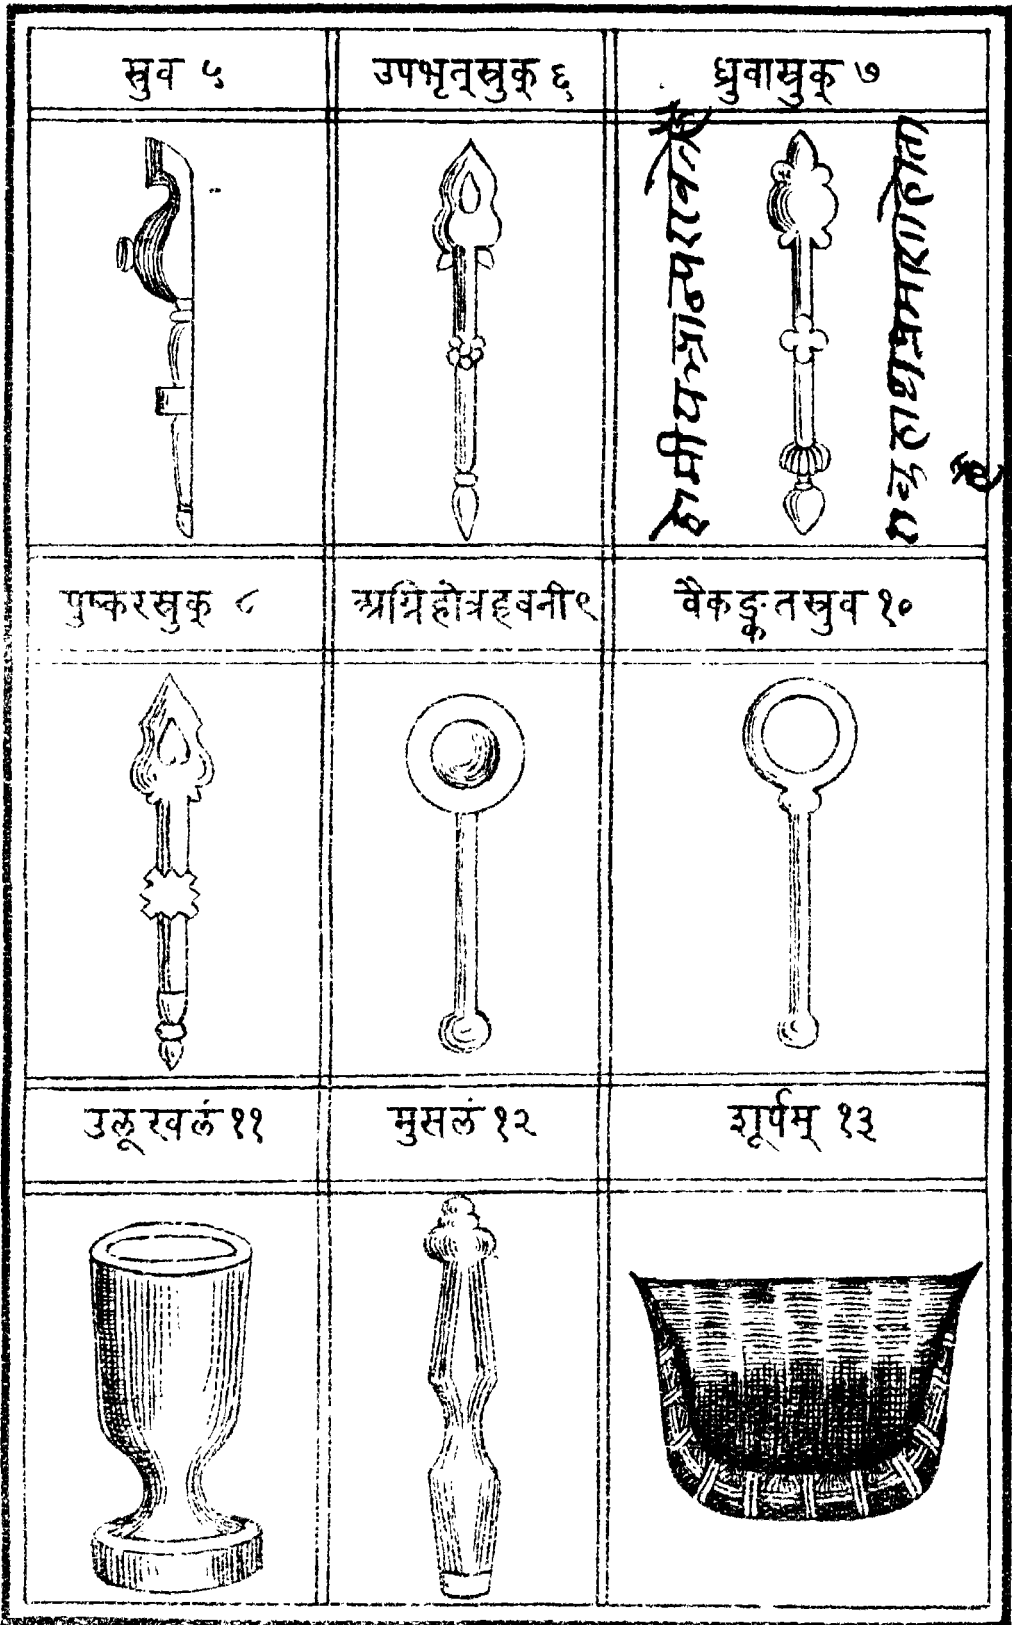 स्रुव ५
उपभृत्स्रुक् ६
ध्रुवास्रुक् ७
पुष्करस्रुक् ८
अग्निहोत्रहवनी ९
वैकङ्कतस्रुव १०
उलूखलं ११
मुसलं १२
शूर्पम् १३